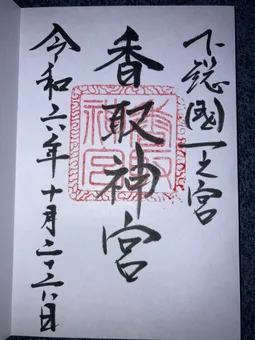 下総國一之宮
香取神宮
香取
神宮
令和六年十月二十六日